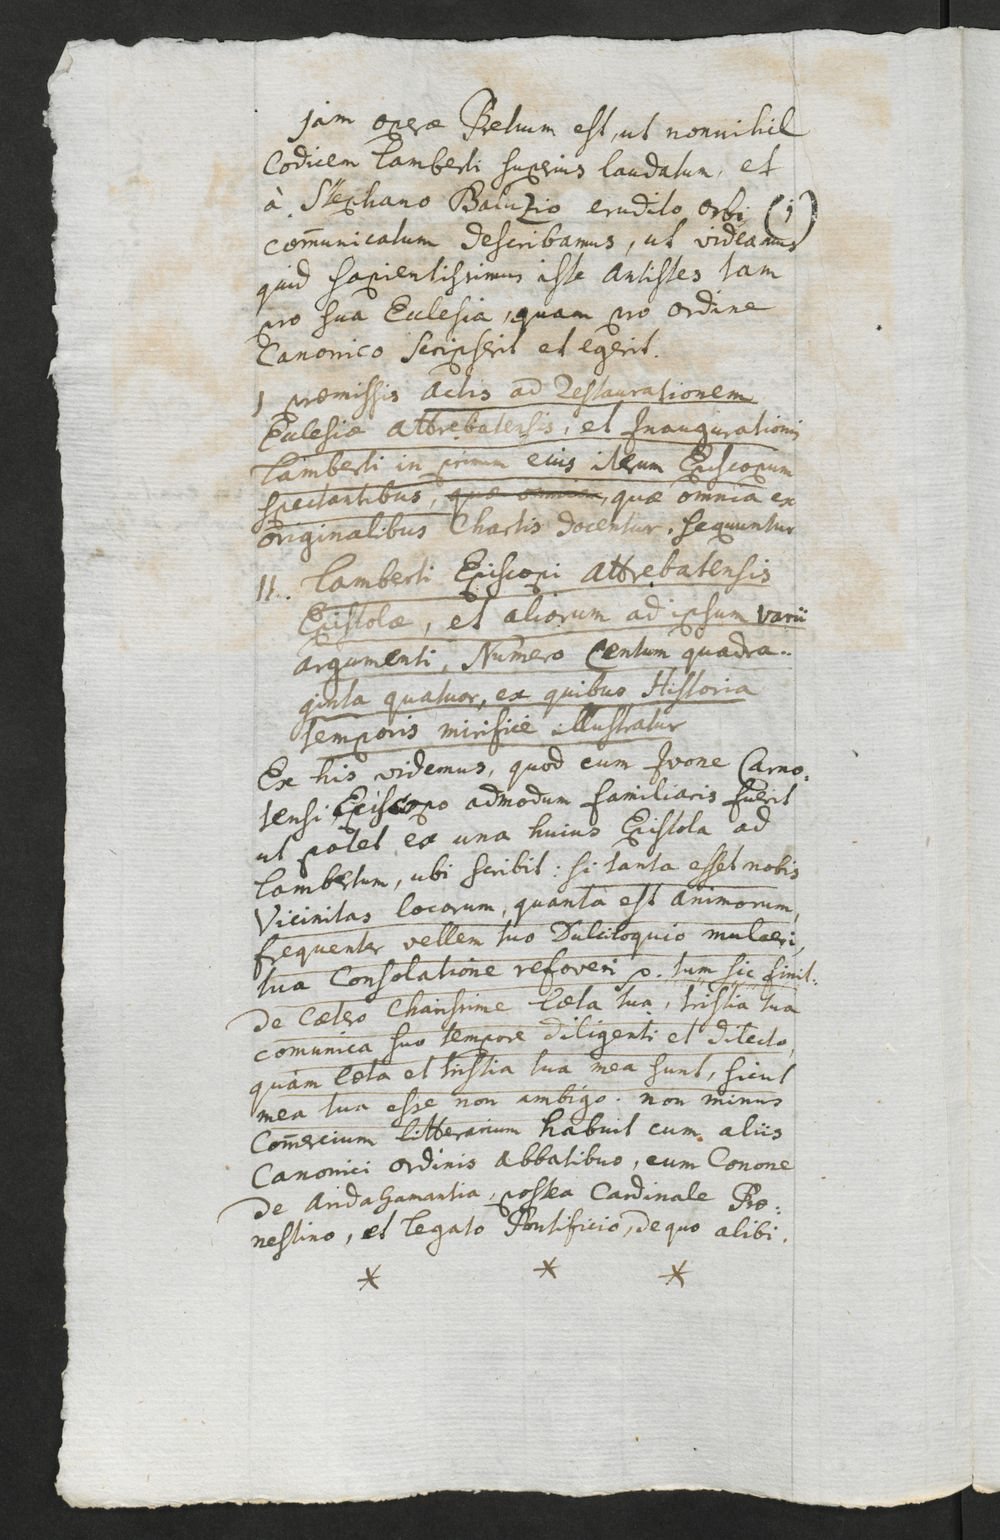 jam operæ Pretium est, ut nonnihil
Codicem Lamberti superius laudatum, et
à Stephano Baluzio erudito orbi (j)
com̄unicatum describamus, ut videamus
quid sapientissimus iste Antistes tam
pro sua Ecclesia, quam pro ordine
Canonico scripserit et egerit.
I præmissis Actis ad Restaurationem
Ecclesiæ Attrebatensis, et Inaugurationis
Lamberti in primum eius iterum Episcopum
spectantibus, quæ omnia, quæ omnia ex
originalibus Chartis docentur. sequuntur
II. Lamberti Episcopi Attrebatensis
Epistolæ, et aliorum ad ipsum varii
argumenti, Numero Centum quadra..
ginta quatuor, ex quibus Historia
temporis mirificè illustratur
Ex his videmus, quod cum Ivone Carno.
tensi Episcopo admodum familiaris fuerit
ut patet ex una huius Epistola ad
Lambertum, ubi scribit: si tanta esset nobis
Vicinitas locorum, quanta est animorum,
frequenter vellem tuo Dulciloquio mulceri,
tua Consolatione refoveri p. tum sic finit.
De Cætero Charissime læta tua, tristia tua
comunica suo tempore diligenti et dilecto,
quàm læta et tristia tua mea sunt, sicut
mea tua esse non ambigo. non minus
Com̄ercium litterarium habuit cum aliis
Canonici ordinis Abbatibus, cum Conone
De AridaGamantia, postea Cardinale Præ:
nestino, et legato Pontificio, de quo alibi.
* * *